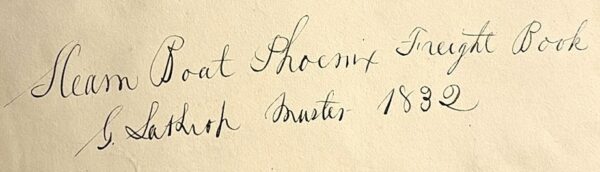 Steam Boat Phoenix Freight Book
G. Lathrop Master 1832